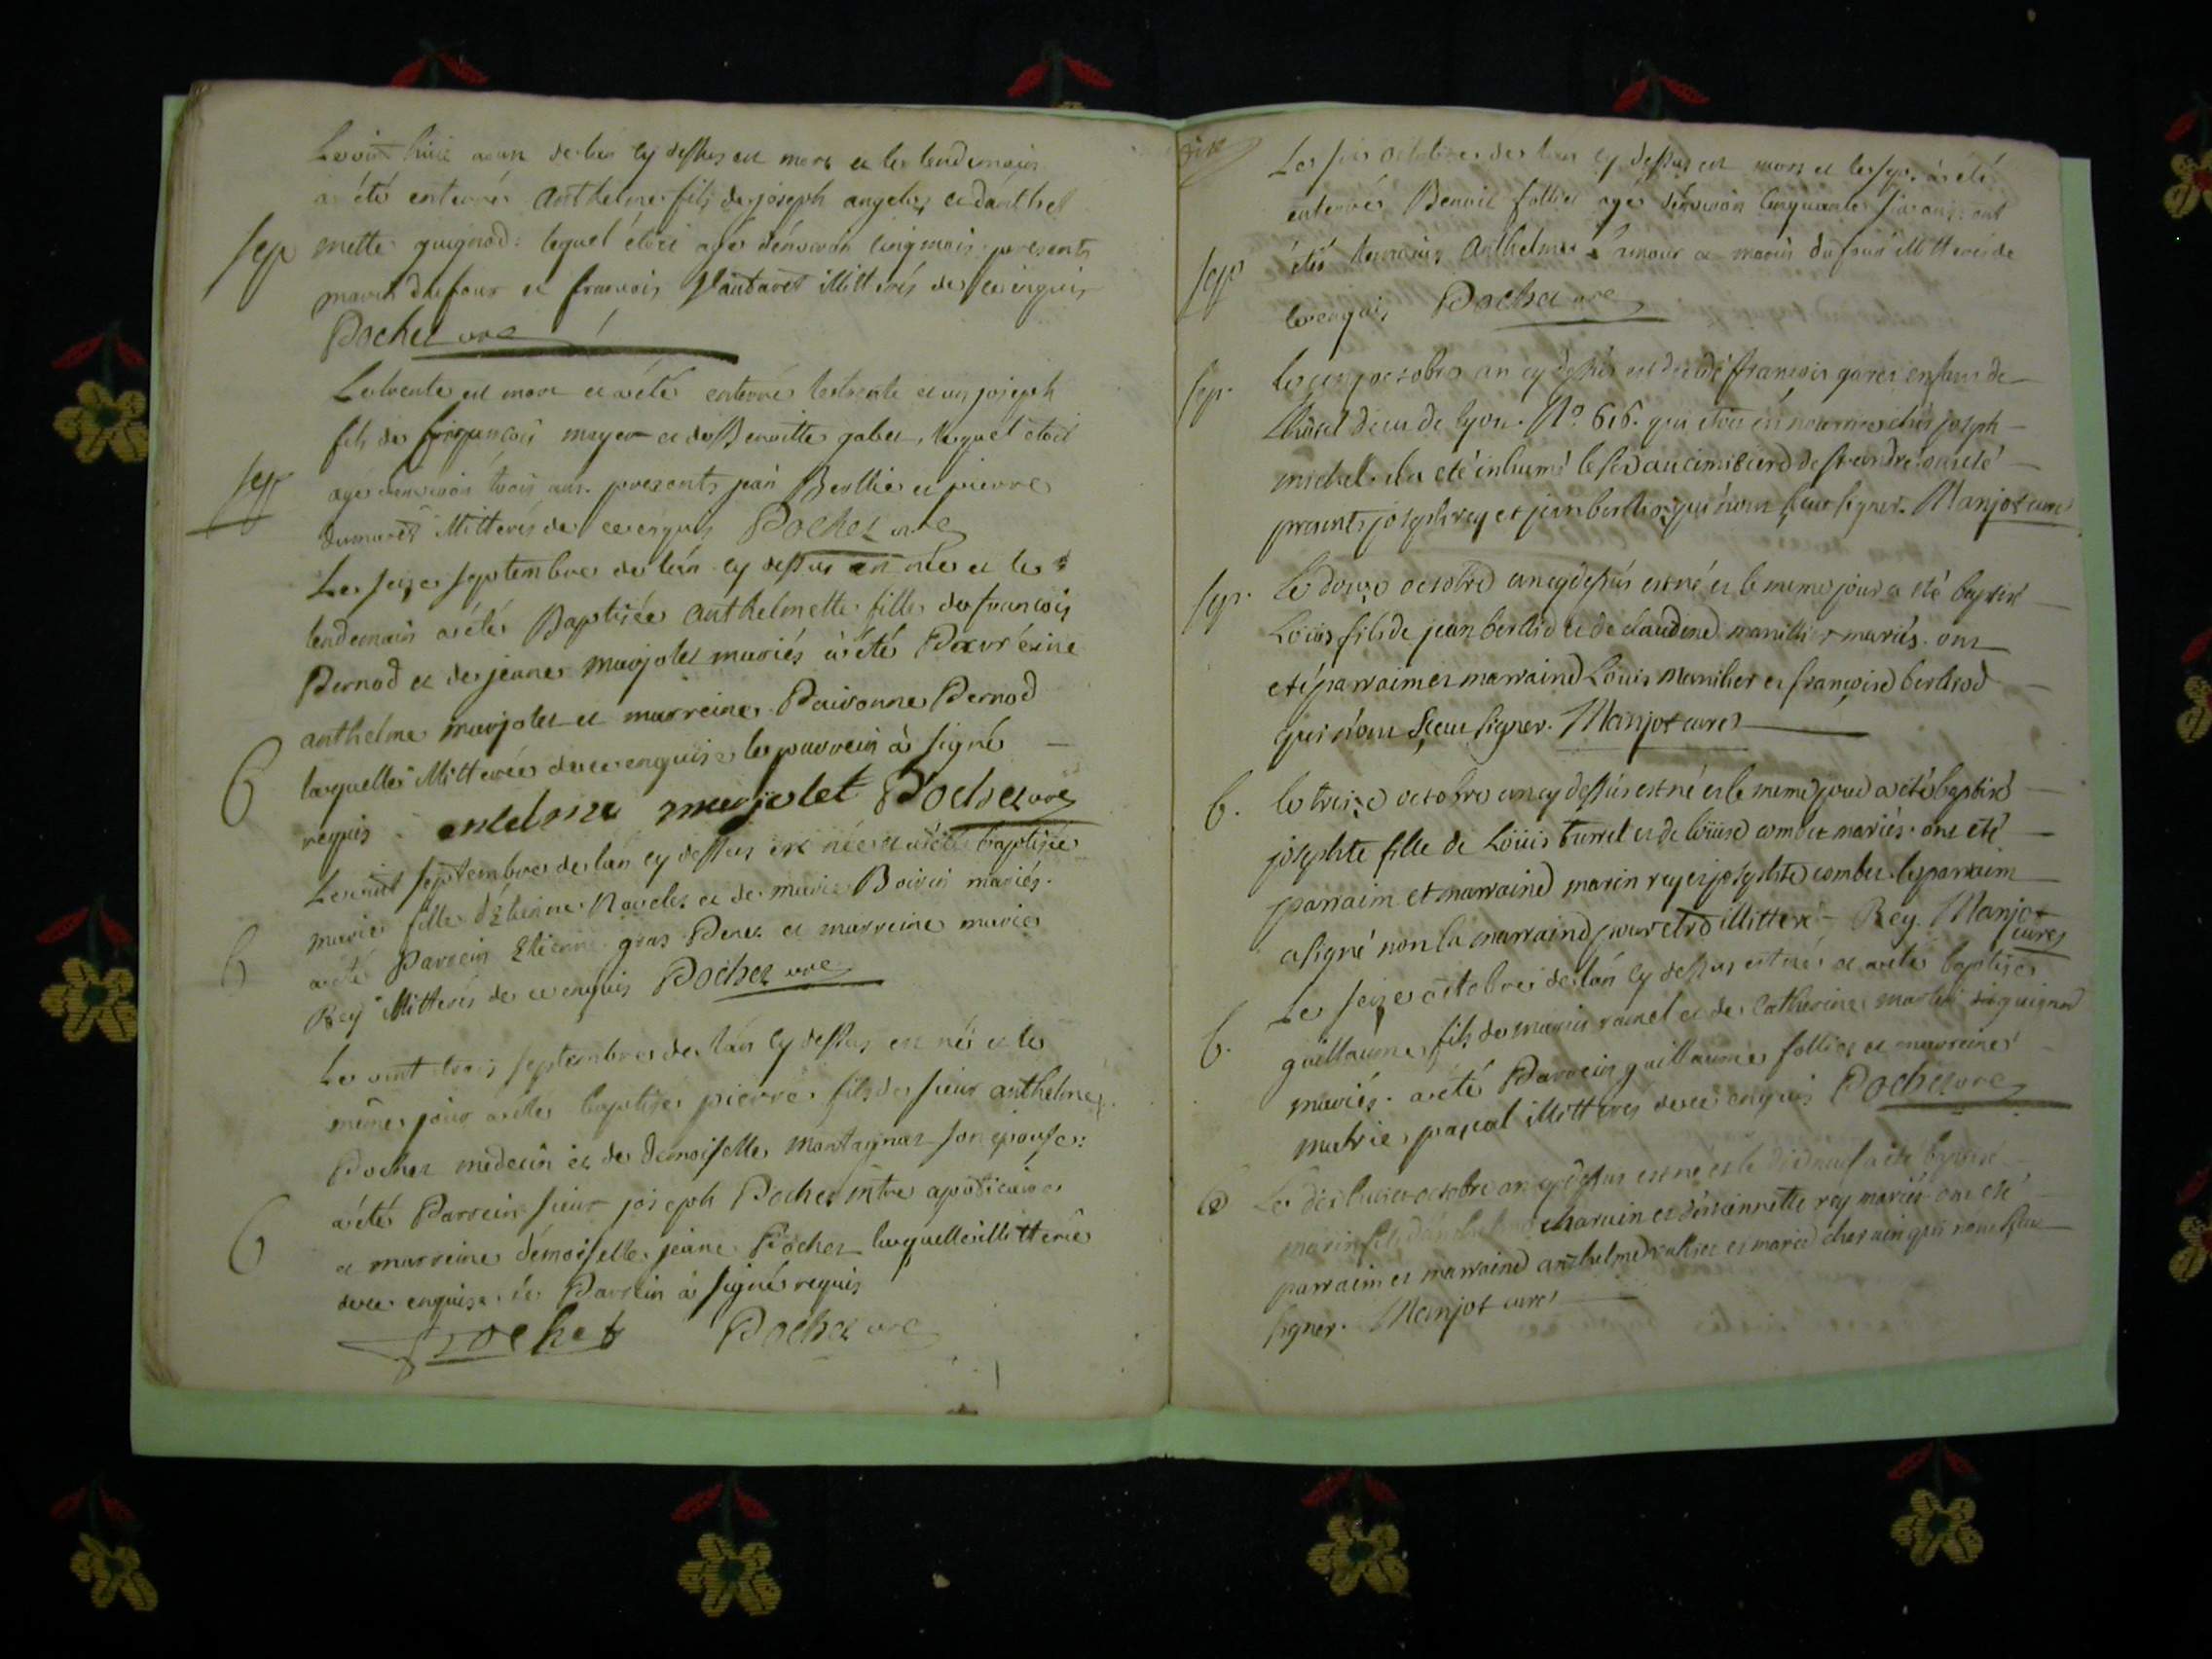 Le vint huit aout de lan cy dessus est mort et le lendemain
a été enterré Anthelme fils de joseph angelos et d'anthel
sep mette guignod: lequel étoit agé dénviron cinq mois presents
marin dufour et francois Vautaret illitterés de ce enquis
Pochet curé
Le trente est mort et a été enterré le trente et un joseph
fils de françois meyer et de Benoitte gabet, lequel etoit
sep agé denviron trois ans. presents jean Berllie et pierre
dumaret illitterés de ce enquis Pochet curé
Le seize septembre de lán cy dessus est née et le
lendemain a été Baptisée anthelmette fille de francois
Pernod et de jeane marjolet mariés à été Parreine
anthelme marjolet et marreine Pernod
6 laquelle illitterée de ce enquise le parrein à signé
requis antelme marjolet Pochet curé
Le vint septembre de lan cy dessus est née et a été baptisée
marie fille d'Etienne Ravelet et de marie Boivin mariés.
6 a été Parrein Etienne gras Peret et marreine marie
Rey illitterés de ce enquis Pochet curé
Le vint trois septembre de lán cy dessus est né et le
même jour a été baptisé pierre fils de sieur anthelme
Pochet médecin et de demoiselle Montagnat son epouse:
a été Parrein sieur joseph Pochet mtre apoticaire
6 et marreine démoiselle jeane Pochet laquelle illitterée
de ce enquise. le Parrein à signé requis
Pochet Pochet curé
Le six octobre de lan cy dessus est mort et le sept à été
enterré Benoit follier agé dénviron cinquante six ans: ont
sep été temoins Anthelme et marin dufour illitterés de
ce enquis Pochet curé
sep. le cinq octobre an cy dessus est décédé francois garet enfant de
Lhotel dieu de lyon. No. 616. qui etoit én nourrice chés joseph
michel. il a eté inhumé le six au cimitiere de st andré. ont eté
presents joseph rey et jean berlier qui n'ont sceu signer. Manjot curé
sep. le douze octobre an cy dessus est né et le meme jour a eté baptisé
Loüis fils de jean berllio et de claudine manillier mariés. ont
eté parraim et marraine Loüis manilier et françoise berliod
qui n'ont sceu signer. Manjot curé
6. le treize octobre an cy dessus est né et le meme jour a eté baptisé
josephte fille de Loüis burrel et de loüise combet mariés. ont eté
parraim et marraine marin rey et josephte combet. le parraim
a signé non la marraine pour etre illitteré Rey. Manjot
curé
Le seize octobre de lán cy dessus est né et a été baptisé
6. guillaume fils de marin ramel et de Catherine guignod
mariés. a été Parrein guillaume follier et marreine
marie pascal illitterés de ce enquis Pochet curé
6 Le dix huit octobre an cy dessus est né et le dixneuf a eté baptisé
marin fils d'anthelme charvin et d'ennette rey mariés ont eté
parraim et marraine anthelme et marie charvin qui n'ont sceu
signer. Manjot curé